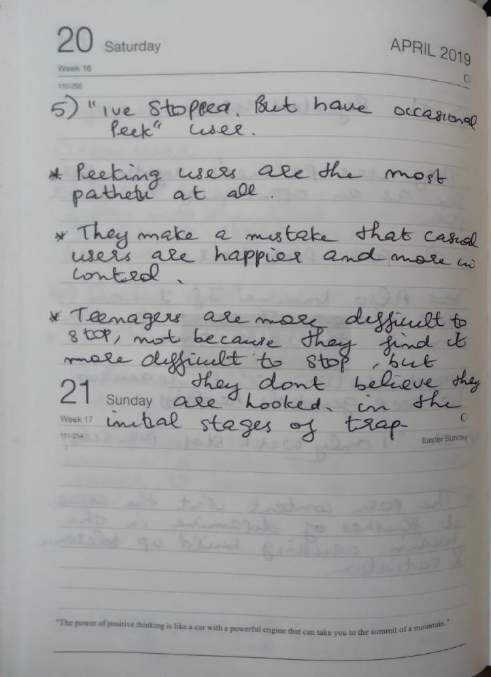 20 Saturday
APRIL 2019
Week 16
110-255
5) "ive stopped. But have occasional
Peek" user.
* Peeking users are the most
pathetic at all.
* They make a mistake that casual
users are happier and more in
control.
* Teenagers are more difficult to
stop, not because they find it
more difficult to stop, but
they dont believe they
21 Sunday are hooked. in the
Week 17 initial stages of trap
111-254
Easter Sunday
"The power of positive thinking is like a car with a powerful engine that can take you to the summit of a mountain."